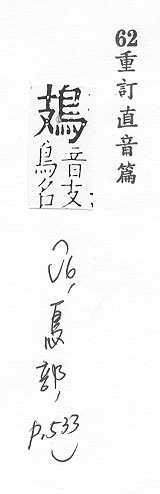 62重訂直音篇
鳷
音支
鳥名
(V6, 鳥部, p.533)